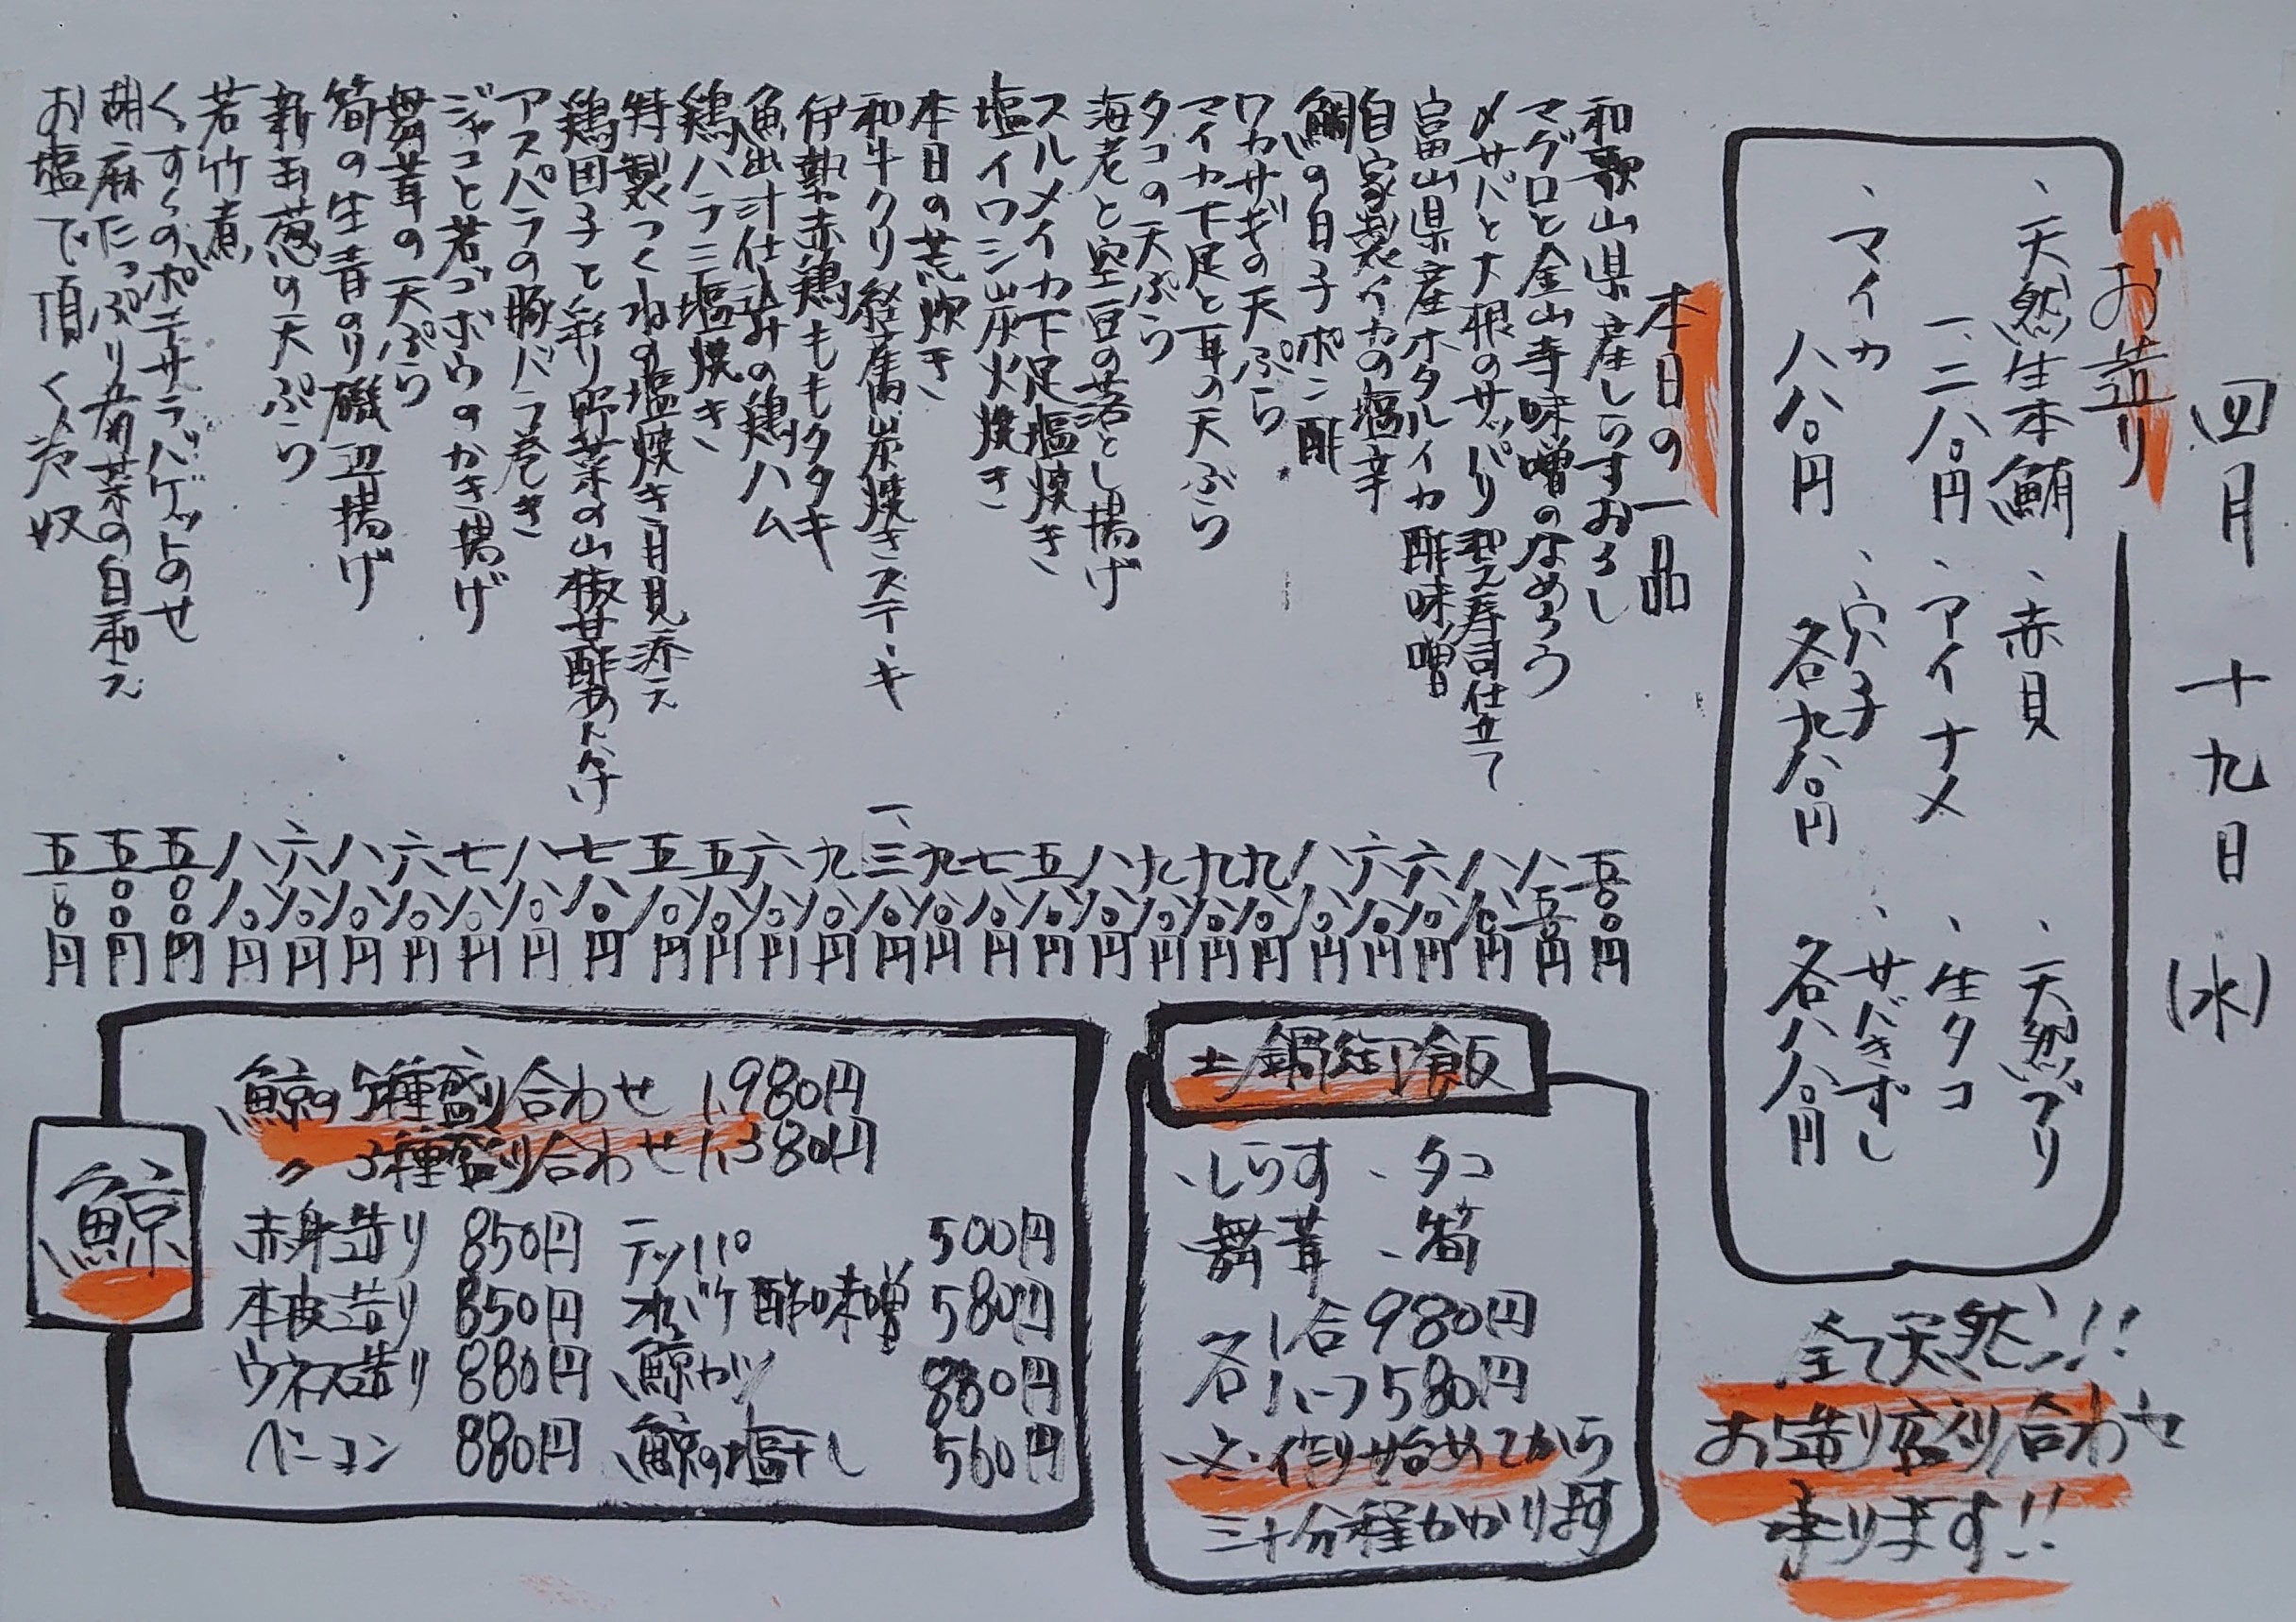 四月十九日(水)
お造り
、天然生本鮪 、赤貝 、天然ブリ
一、二八〇円 、アイナメ 、生タコ
、マイカ 、穴子 、サバきずし
八八〇円 各九八〇円 各八八〇円
全て天然!!
お造り盛り合わせ
承ります!!
本日の一品
和歌山県産しらすおろし 五〇〇円
マグロと金山寺味噌のなめろう 八五〇円
〆サバと大根のサッパリ押え寿司仕立て 八八〇円
富山県産ホタルイカ酢味噌 六八〇円
自家製イカの塩辛 六八〇円
鯛の白子ポン酢 八八〇円
ワカサギの天ぷら 九八〇円
マイカ下足と耳の天ぷら 九八〇円
タコの天ぷら 九八〇円
海老と空豆の落とし揚げ 八八〇円
スルメイカ下足塩焼き 五八〇円
塩イワシ炭火焼き 七八〇円
本日の荒炊き 九八〇円
和牛クリ軽薫炭焼きステーキ 一、三八〇円
伊勢赤鶏ももタタキ 九八〇円
魚出汁仕込みの鶏ハム 六八〇円
鶏ハラミ塩焼き 五八〇円
特製つくねの塩焼き月見添え 五八〇円
鶏団子と彩り野菜の山椒甘酢あんかけ 七八〇円
アスパラの豚バラ巻き 八八〇円
ジャコと若ゴボウのかき揚げ 七八〇円
舞茸の天ぷら 六八〇円
筍の生青のり磯辺揚げ 八八〇円
新玉葱の天ぷら 六八〇円
若竹煮 八八〇円
くずし のポテサラバゲットのせ 五〇〇円
胡麻たっぷり五菜の白和え 五〇〇円
お塩で頂く冷奴 五〇〇円
土鍋御飯
、しらす 、タコ
、舞茸 、筍
各1合980円
各ハーフ580円
※作り始めてから
三十分程かかります
鯨
鯨の5種盛り合わせ 1,980円
〃 3種盛り合わせ 1,380円
赤身造り 850円 テッパ 500円
本皮造り 850円 オバケ酢味噌 580円
ウネス造り 880円 鯨カツ 880円
ベーコン 880円 鯨の塩干し 560円